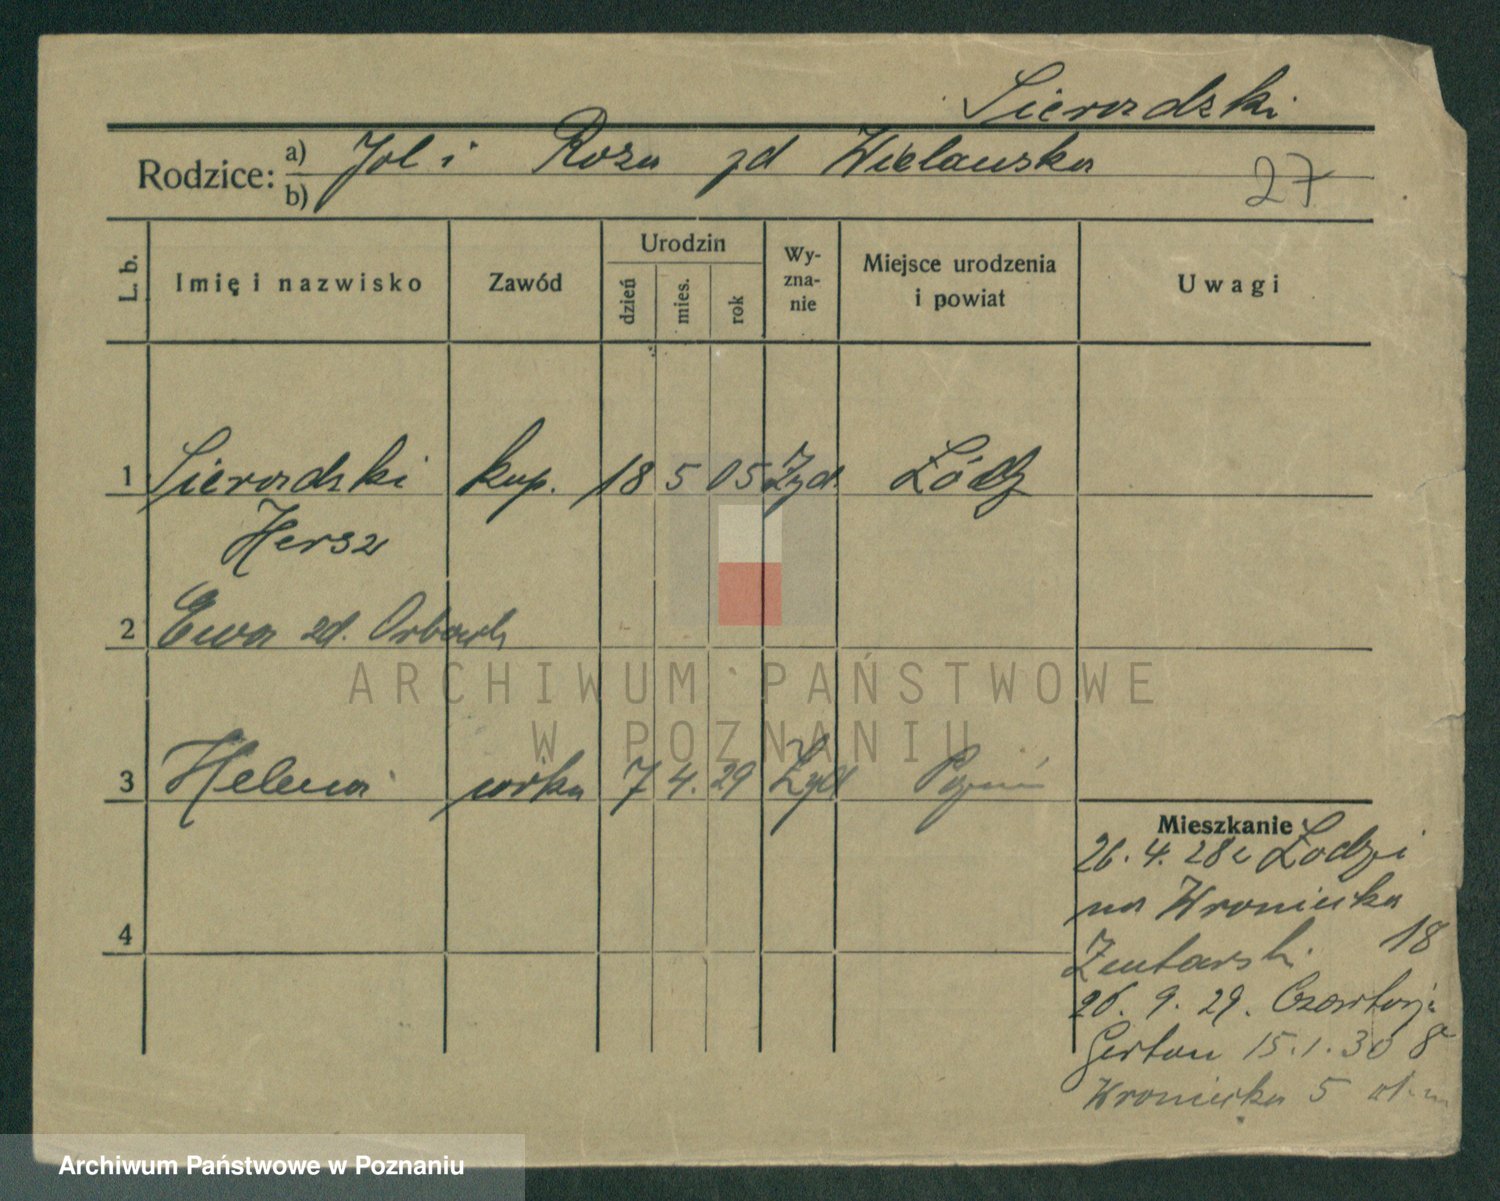 Sieradzki
Rodzice: a) Jol i Roza zd Wielauska
b)
27
L. b. Imię i nazwisko Zawód Urodzin dzień mies. rok Wy-zna-nie Miejsce urodzenia i powiat Uwagi
1 Sieradzki kup. 18 5 05 Żyd Łódź
Hersz
2 Ewa zd. Orbach
3 Helena córka 7 4. 29 Żyd Poznań
Mieszkanie
26. 4. 28 z Łodzi
na Wroniecka
18
4
26. 9. 29. Czartorji
Gerton 15.1.30 8
Wroniecka 5
ARCHIWUM PAŃSTWOWE
W POZNANIU
Archiwum Państwowe w Poznaniu